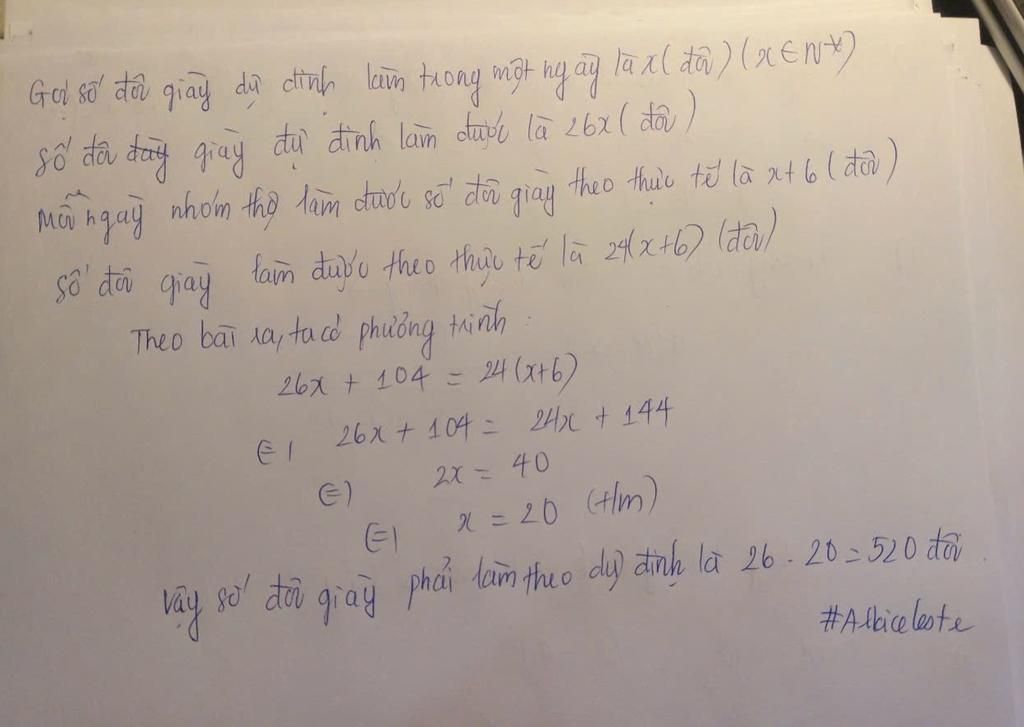 Gọi số đôi giày dự định làm trong một ngày là x (đôi) (x ∈ N*)
số đôi giày dự định làm được là 26x (đôi)
Mỗi ngày nhóm thợ làm được số đôi giày theo thực tế là x+6 (đôi)
số đôi giày làm được theo thực tế là 24(x+6) (đôi)
Theo bài ra, ta có phương trình:
26x + 104 = 24(x+6)
⇔ 26x + 104 = 24x + 144
⇔ 2x = 40
⇔ x = 20 (t/m)
Vậy số đôi giày phải làm theo dự định là 26 . 20 = 520 đôi.
#Albiceleste